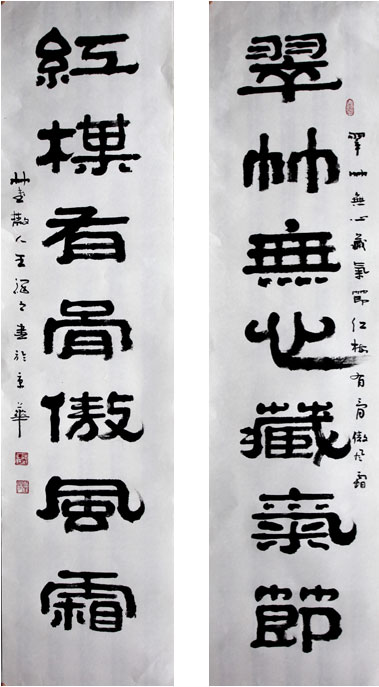 翠竹無心藏氣節
翠竹無心藏氣節红梅有骨傲风霜
紅楳有骨傲風霜
散人王書於京華